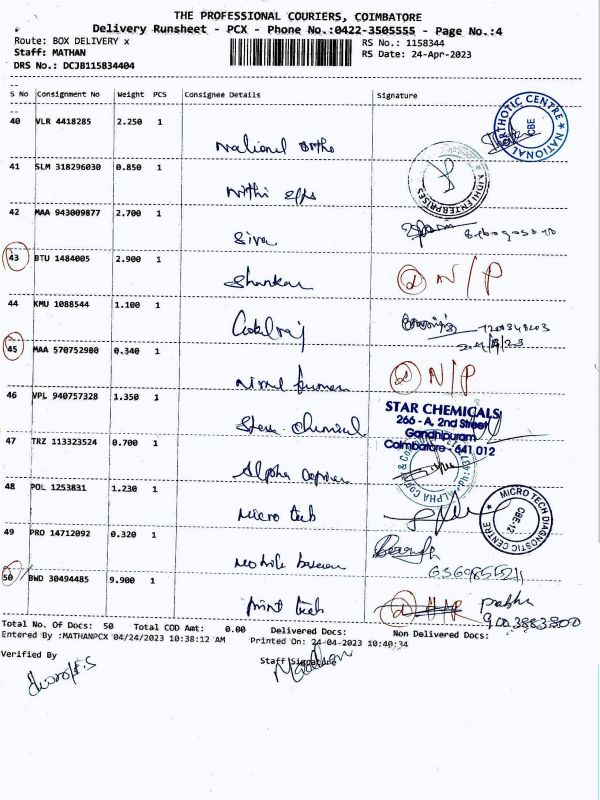 THE PROFESSIONAL COURIERS, COIMBATORE
Delivery Runsheet - PCX - Phone No.:0422-3505555 - Page No.:4
Route: BOX DELIVERY x RS No.: 1158344
Staff: MATHAN RS Date: 24-Apr-2023
DRS No.: DCJB115834404
S No Consignment No Weight PCS Consignee Details Signature
40 VLR 4418285 2.250 1
National Ortho
ORTHOTIC CENTRE ★ NATIONAL ★
CBE
41 SLM 318296030 0.850 1
Nithi
NIDHI ENTERPRISES
42 MAA 943009877 2.700 1
Siva
43 BTU 1484005 2.900 1
Shankar
N/P
44 KMU 1088544 1.100 1
Gokulraj
45 MAA 570752980 0.340 1
N/P
46 VPL 940757328 1.350 1
Star Chemical
STAR CHEMICALS
266 - A, 2nd Street
Gandhipuram
Coimbatore - 641 012
47 TRZ 113323524 0.700 1
Alpha
48 POL 1253831 1.230 1
Micro tech
MICRO TECH DIAGNOSTIC CENTRE ★
CBE-12
49 PRO 14712092 0.320 1
50 BWD 30494485 9.900 1
Print tech
Prabhu
9003883800
Total No. Of Docs: 50 Total COD Amt: 0.00 Delivered Docs: Non Delivered Docs:
Entered By :MATHANPCX 04/24/2023 10:38:12 AM Printed On: 24-04-2023 10:40:34
Verified By Staff Signature